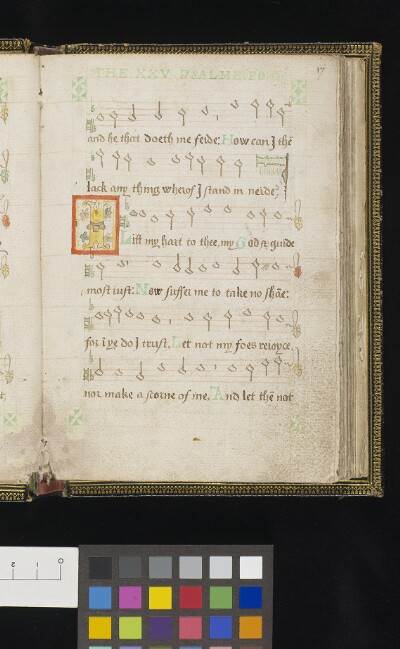 THE XXV PSALME
17
and he that doeth me feide: How can I thē
lack any thing wherof I stand in neide?
I Lift my hart to thee, my God & guide
most iust: Now suffer me to take no shāe:
for i yᵉ do I trust, Let not my foes reioyce,
nor make a scorne of me, And let thē not
0 1 2